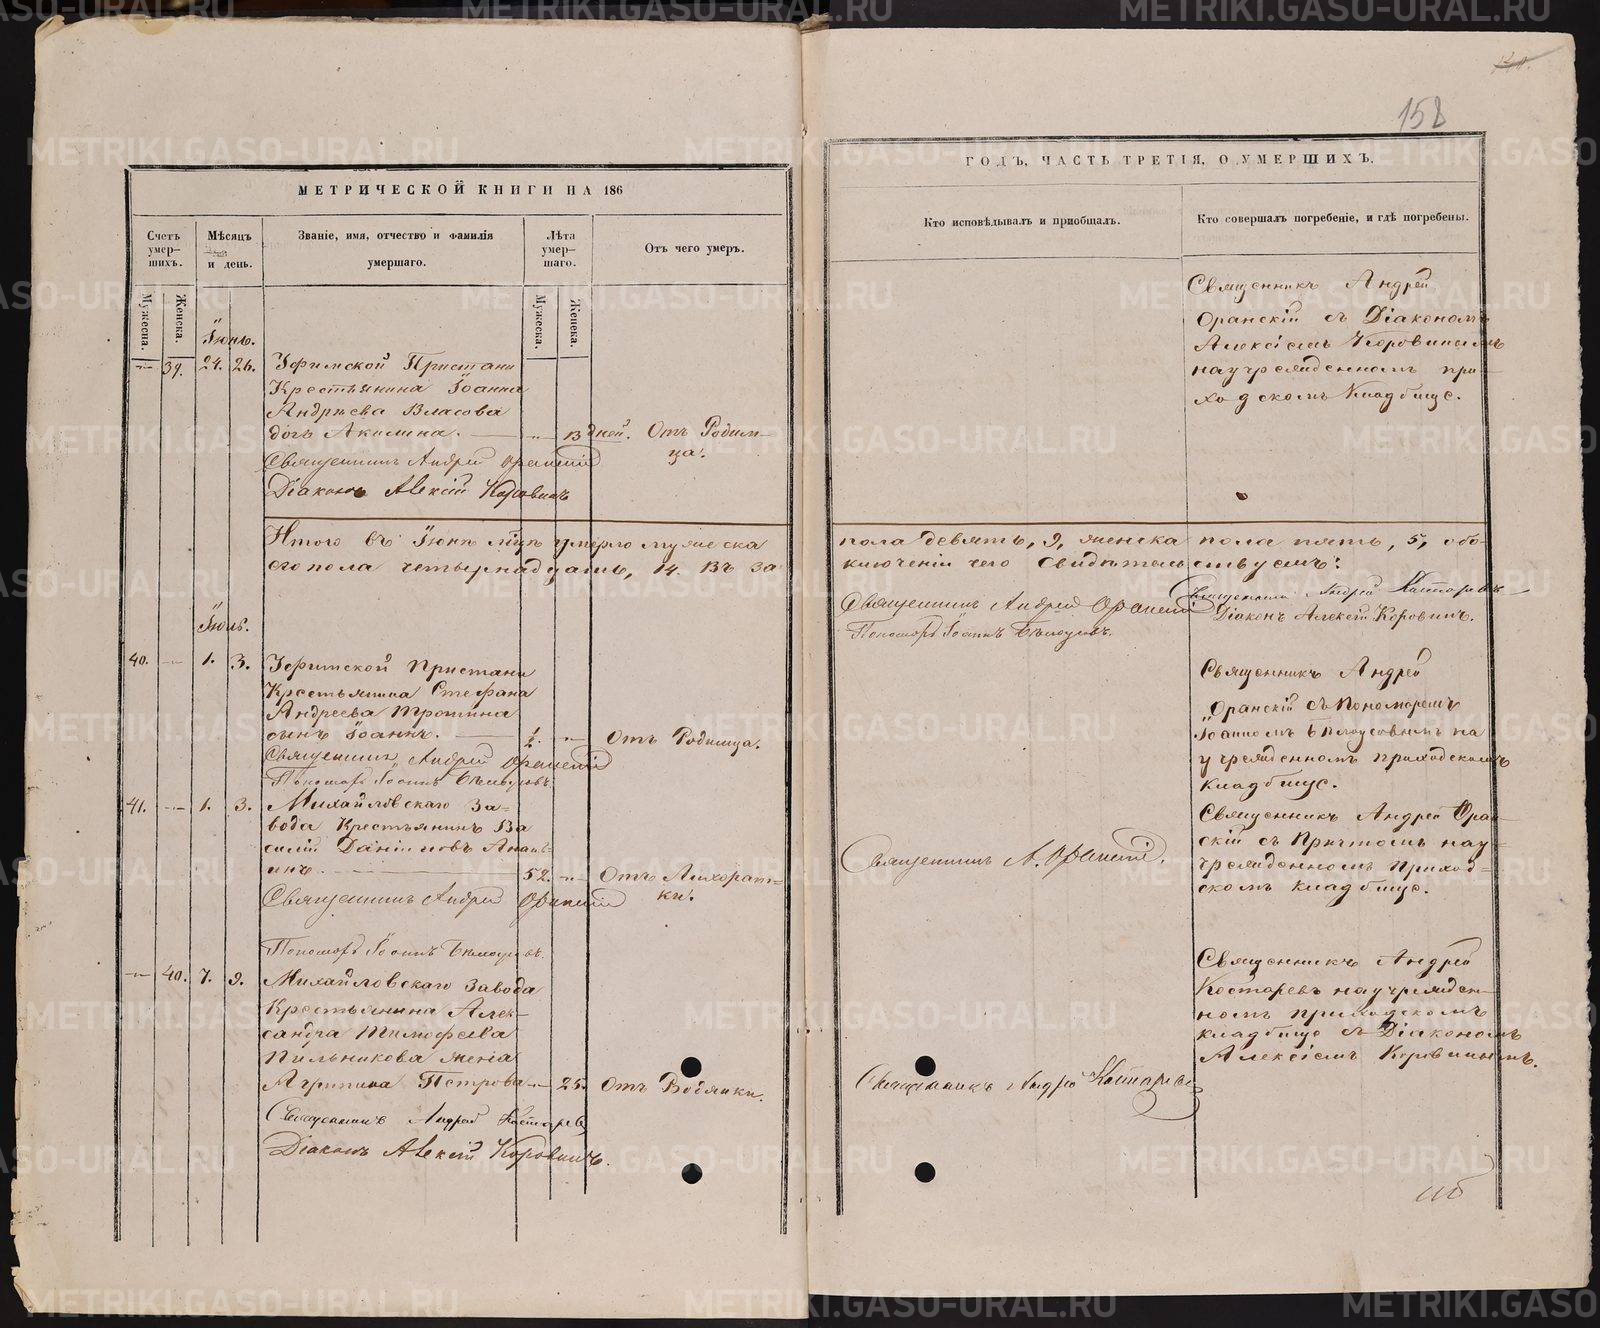 158
МЕТРИЧЕСКОЙ КНИГИ НА 186
Счетъ умер-шихъ.
Мѣсяцъ и день.
Званіе, имя, отчество и фамилія умершаго.
Лѣта умер-шаго.
Отъ чего умеръ.
Мужеска.
Женска.
Мужеска.
Женска.
Іюнь.
39. 24. 26. Уфимской Пристани
Крестьянина Іоанна
Андреева Власова
дочь Акилина. 13 дней. Отъ Родим-
ца.
Священникъ Андрей Оранскій
Діаконъ Алексій Коровинъ
Итого въ Іюнѣ мцѣ умерло мужеска
пола четырнадцать, 14. Въ за
Іюль.
40. 1. 3. Уфимской Пристани
Крестьянина Стефана
Андреева Тротина
сынъ Іоаннъ. ½. Отъ Родимца.
Священникъ Андрей Оранскій
Пономарь Іоаннъ Бѣлоусовъ.
41. 1. 3. Михайловскаго За-
вода Крестьянинъ Ва
силій Даніиловъ
52. Отъ Лихорат-
ки.
Священникъ Андрей Оранскій
Пономарь Іоаннъ Бѣлоусовъ.
40. 7. 9. Михайловскаго Завода
Крестьянина Алек-
сандра Тимофеева
Пильникова жена
Агрипина Петрова 25. Отъ Водянки.
Священникъ Андрей Костаревъ
Діаконъ Алексій Коровинъ.
ГОДЪ, ЧАСТЬ ТРЕТІЯ, О УМЕРШИХЪ.
Кто исповѣдывалъ и пріобщалъ.
Кто совершалъ погребеніе, и гдѣ погребены.
Священникъ Андрей
Оранскій съ Діакономъ
Алексіемъ Коровинымъ
на учрежденномъ при-
ходскомъ Кладбище.
пола девять, 9, женска пола пять, 5, обо-
ключеніи чего свидѣтельствуемъ:
Священникъ Андрей Оранскій Священникъ Андрей Костаревъ
Пономарь Іоаннъ Бѣлоусовъ. Діаконъ Алексій Коровинъ.
Священникъ Андрей
Оранскій съ Пономаремъ
Іоанномъ Бѣлоусовымъ на
учрежденномъ приходскомъ
кладбище.
Священникъ Андрей Оран-
скій съ Притомъ на у-
чрежденномъ Приход-
скомъ кладбище.
Священникъ А. Оранскій.
Священникъ Андрей
Костаревъ на учрежден-
номъ приходскомъ
кладбище съ Діакономъ
Алексіемъ Коровинымъ.
Священникъ Андрей Костаревъ
METRIKI.GASO-URAL.RU